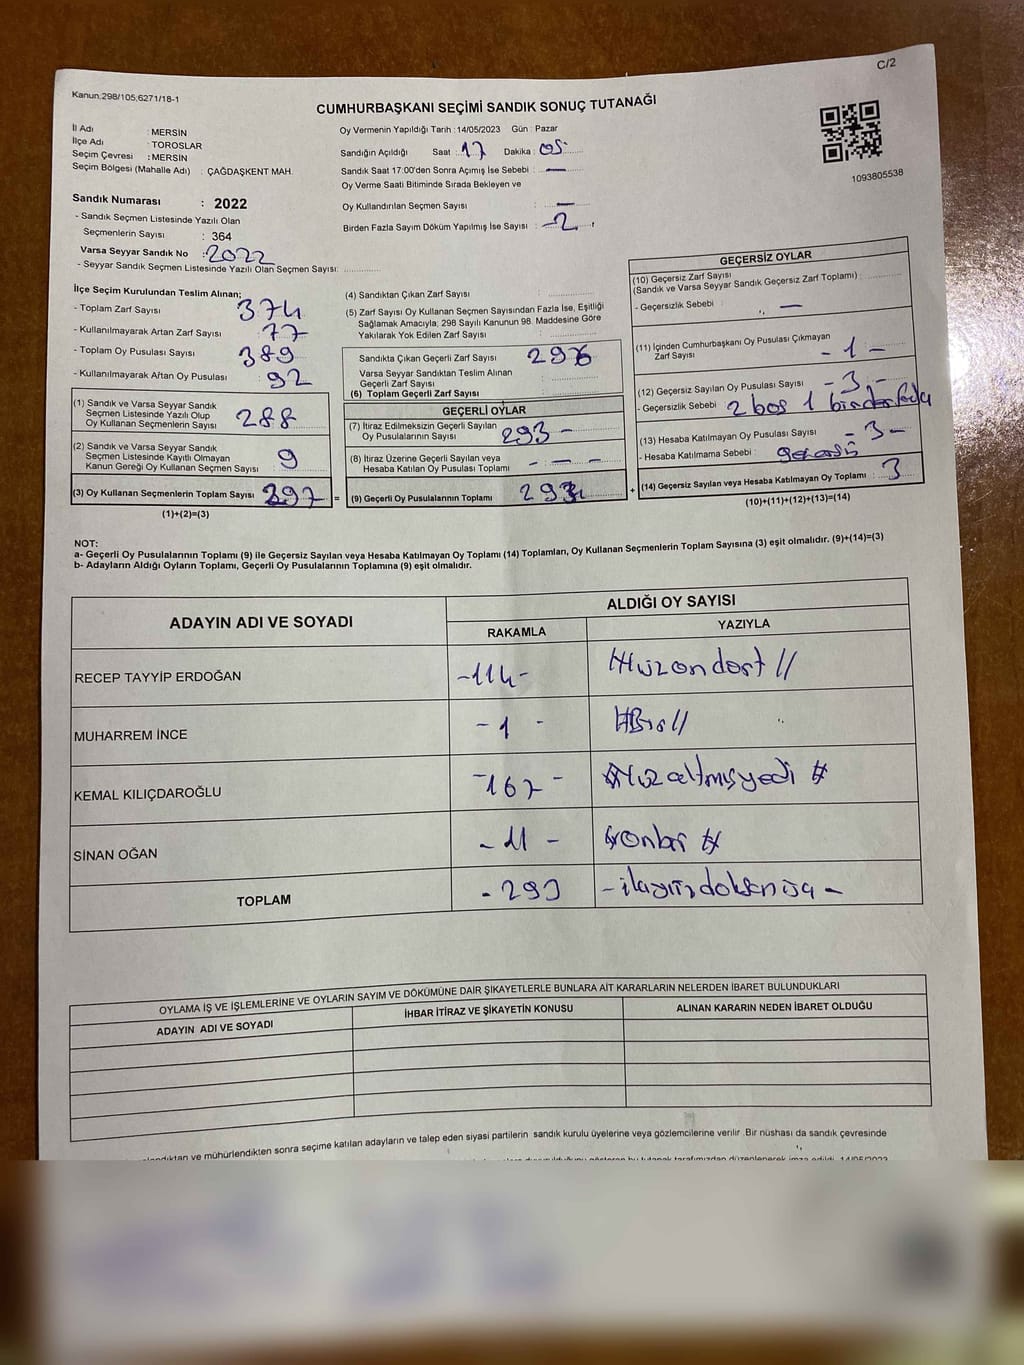 C/2
Kanun:298/105,6271/18-1
CUMHURBAŞKANI SEÇİMİ SANDIK SONUÇ TUTANAĞI
İl Adı : MERSİN
İlçe Adı : TOROSLAR
Seçim Çevresi : MERSİN
Seçim Bölgesi (Mahalle Adı) : ÇAĞDAŞKENT MAH.
Sandık Numarası : 2022
- Sandık Seçmen Listesinde Yazılı Olan
Seçmenlerin Sayısı : 364
Varsa Seyyar Sandık No : 2022
- Seyyar Sandık Seçmen Listesinde Yazılı Olan Seçmen Sayısı:
Oy Vermenin Yapıldığı Tarih : 14/05/2023 Gün : Pazar
Sandığın Açıldığı Saat : 17 Dakika : 05
Sandık Saat 17:00'den Sonra Açımış İse Sebebi : —
Oy Verme Saati Bitiminde Sırada Bekleyen ve
Oy Kullandırılan Seçmen Sayısı : —
Birden Fazla Sayım Döküm Yapılmış İse Sayısı : -2
1093805538
İlçe Seçim Kurulundan Teslim Alınan;
- Toplam Zarf Sayısı : 374
- Kullanılmayarak Artan Zarf Sayısı : 77
- Toplam Oy Pusulası Sayısı : 389
- Kullanılmayarak Artan Oy Pusulası : 92
(1) Sandık ve Varsa Seyyar Sandık
Seçmen Listesinde Yazılı Olup
Oy Kullanan Seçmenlerin Sayısı : 288
(2) Sandık ve Varsa Seyyar Sandık
Seçmen Listesinde Kayıtlı Olmayan
Kanun Gereği Oy Kullanan Seçmen Sayısı : 9
(3) Oy Kullanan Seçmenlerin Toplam Sayısı : 297 =
(1)+(2)=(3)
(4) Sandıktan Çıkan Zarf Sayısı :
(5) Zarf Sayısı Oy Kullanan Seçmen Sayısından Fazla İse, Eşitliği
Sağlamak Amacıyla, 298 Sayılı Kanunun 98. Maddesine Göre
Yakılarak Yok Edilen Zarf Sayısı :
Sandıkta Çıkan Geçerli Zarf Sayısı : 296
Varsa Seyyar Sandıktan Teslim Alınan
Geçerli Zarf Sayısı :
(6) Toplam Geçerli Zarf Sayısı :
GEÇERLİ OYLAR
(7) İtiraz Edilmeksizin Geçerli Sayılan
Oy Pusulalarının Sayısı : 293 -
(8) İtiraz Üzerine Geçerli Sayılan veya
Hesaba Katılan Oy Pusulası Toplamı : - - -
(9) Geçerli Oy Pusulalarının Toplamı : 293 +
GEÇERSİZ OYLAR
(10) Geçersiz Zarf Sayısı
(Sandık ve Varsa Seyyar Sandık Geçersiz Zarf Toplamı) :
- Geçersizlik Sebebi : —
(11) İçinden Cumhurbaşkanı Oy Pusulası Çıkmayan
Zarf Sayısı : - 1 -
(12) Geçersiz Sayılan Oy Pusulası Sayısı : - 3 -
- Geçersizlik Sebebi : 2 boş 1 birden fazla
(13) Hesaba Katılmayan Oy Pusulası Sayısı : - 3 -
- Hesaba Katılmama Sebebi :
(14) Geçersiz Sayılan veya Hesaba Katılmayan Oy Toplamı : 3
(10)+(11)+(12)+(13)=(14)
NOT:
a- Geçerli Oy Pusulalarının Toplamı (9) ile Geçersiz Sayılan veya Hesaba Katılmayan Oy Toplamı (14) Toplamları, Oy Kullanan Seçmenlerin Toplam Sayısına (3) eşit olmalıdır. (9)+(14)=(3)
b- Adayların Aldığı Oyların Toplamı, Geçerli Oy Pusulalarının Toplamına (9) eşit olmalıdır.
ADAYIN ADI VE SOYADI
ALDIĞI OY SAYISI
RAKAMLA YAZIYLA
RECEP TAYYİP ERDOĞAN -114- Yüzondört //
MUHARREM İNCE - 1 - Bir //
KEMAL KILIÇDAROĞLU -167- Yüzaltmışyedi #
SİNAN OĞAN - 11 - onbir #
TOPLAM - 293
OYLAMA İŞ VE İŞLEMLERİNE VE OYLARIN SAYIM VE DÖKÜMÜNE DAİR ŞİKAYETLERLE BUNLARA AİT KARARLARIN NELERDEN İBARET BULUNDUKLARI
ADAYIN ADI VE SOYADI
İHBAR İTİRAZ VE ŞİKAYETİN KONUSU
ALINAN KARARIN NEDEN İBARET OLDUĞU
ve mühürlendikten sonra seçime katılan adayların ve talep eden siyasi partilerin sandık kurulu üyelerine veya gözlemcilerine verilir .Bir nüshası da sandık çevresinde